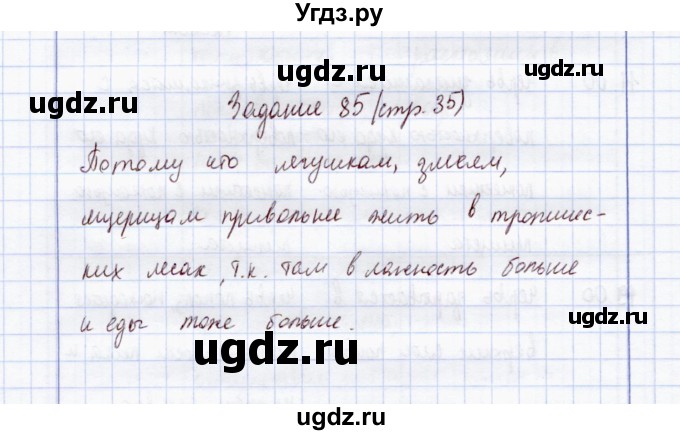 Угдз.ру
ugdz.ru ugdz.ru
Задание 85 (стр. 35)
ugdz.ru
Потому что лягушкам, змеям,
ugdz.ru
ящерицам привольнее жить в тропичес-
ugdz.ru
ких лесах, т.к. там влажность больше
и еды тоже больше.
ugdz.ru ugdz.ru
ugdz.ru